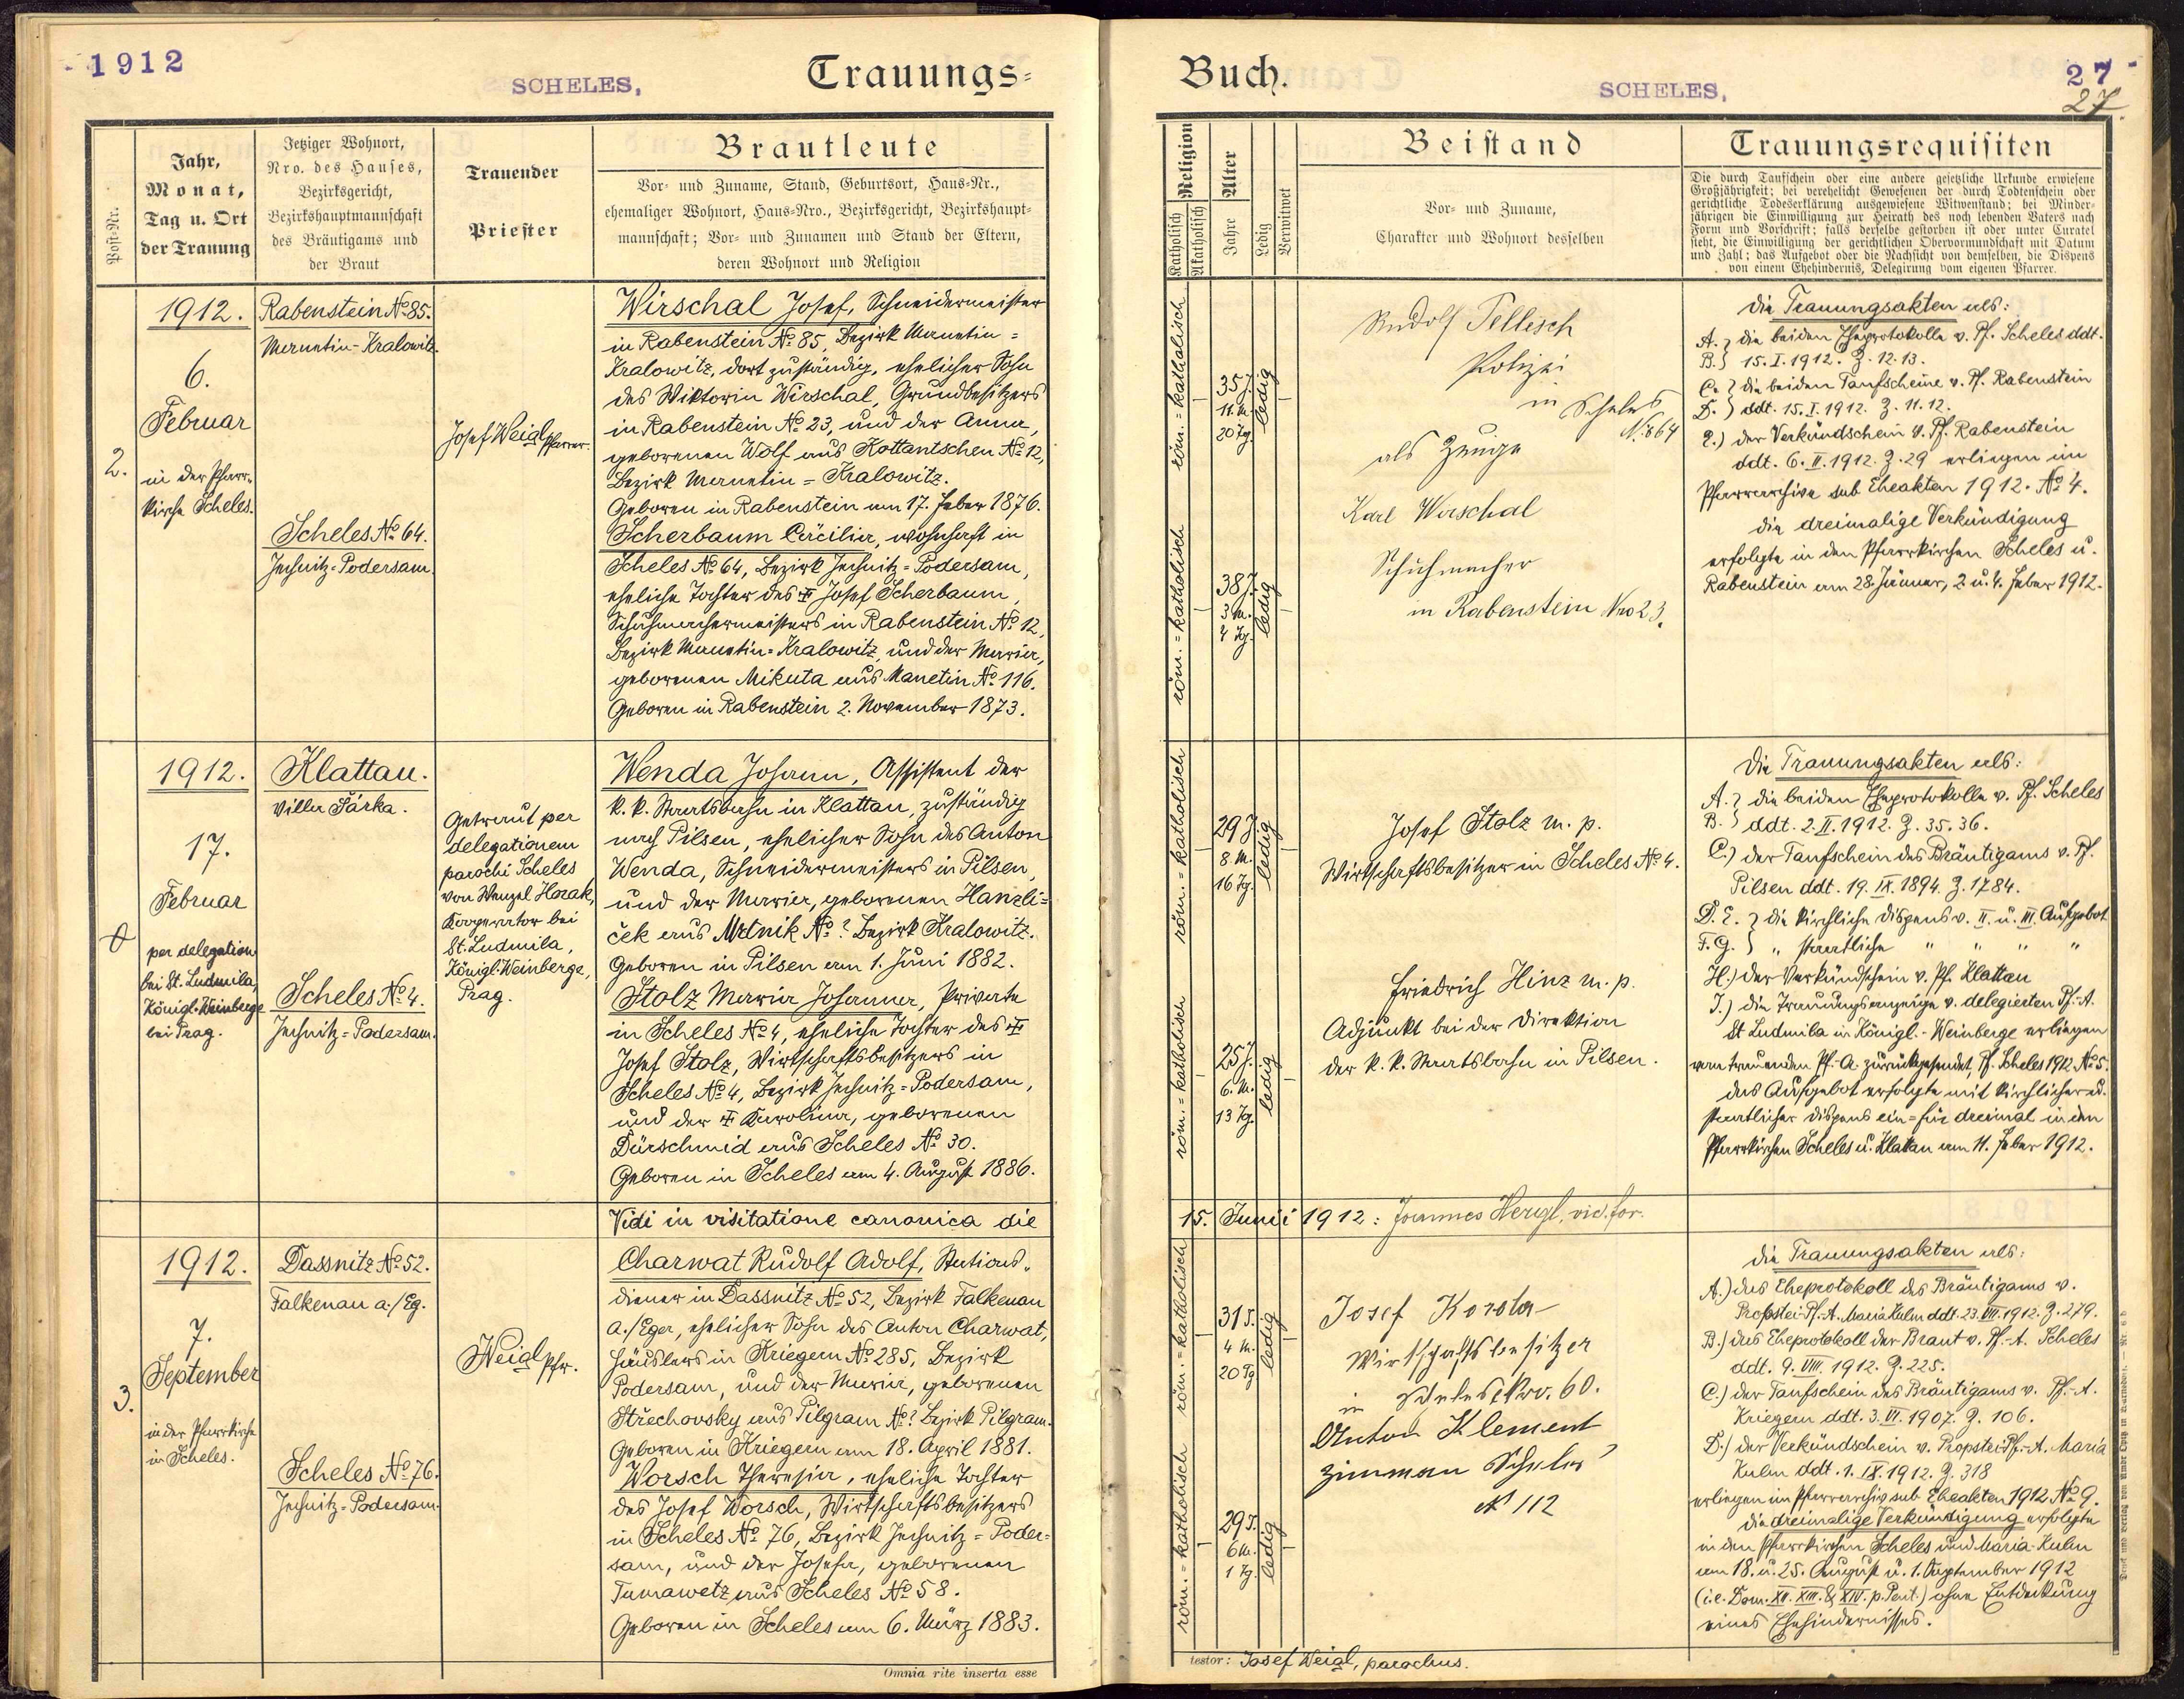 1912
SCHELES,
Trauungs=
Post-Nr.
Jahr,
Monat,
Tag u. Ort
der Trauung
Jetziger Wohnort,
Nro. des Hauses,
Bezirksgericht,
Bezirkshauptmannschaft
des Bräutigams und
der Braut
Trauender
Priester
Brautleute
Vor- und Zuname, Stand, Geburtsort, Haus-Nr.,
ehemaliger Wohnort, Haus-Nro., Bezirksgericht, Bezirkshaupt-
mannschaft; Vor- und Zunamen und Stand der Eltern,
deren Wohnort und Religion
2.
1912.
6.
Februar
in der Pfarr-
kirche Scheles.
Rabenstein No 85.
Manetin-Kralowitz.
Scheles No 64.
Jechnitz-Podersam.
Josef Weigl Pfarrer.
Wirschal Josef, Schneidermeister
in Rabenstein No 85, Bezirk Manetin=
Kralowitz, dort zuständig, ehelicher Sohn
des Wiktorin Wirschal, Grundbesitzers
in Rabenstein No 23, und der Anna,
geborenen Wolf aus Kottantschen No 12,
Bezirk Manetin=Kralowitz.
Geboren in Rabenstein am 17. Feber 1876.
Scherbaum Cäcilia, wohnhaft in
Scheles No 64, Bezirk Jechnitz=Podersam,
eheliche Tochter des ☩ Josef Scherbaum,
Schuhmachermeisters in Rabenstein No 12,
Bezirk Manetin=Kralowitz, und der Maria,
geborenen Mikuta aus Manetin No 116.
Geboren in Rabenstein 2. November 1873.
1912.
17.
Februar
per delegation
bei St. Ludmila,
Königl. Weinberge
bei Prag.
Klattau.
Villa Šárka.
Scheles No 4.
Jechnitz=Podersam.
Getraut per
delegationem
parochi Scheles
von Wenzel Horak,
Kooperator bei
St. Ludmila,
Königl. Weinberge,
Prag.
Wenda Johann, Assistent der
k. k. Staatsbahn in Klattau, zuständig
nach Pilsen, ehelicher Sohn des Anton
Wenda, Schneidermeisters in Pilsen,
und der Maria, geborenen Hanzli=
ček aus Mladnik No ? Bezirk Kralowitz.
Geboren in Pilsen am 1. Juni 1882.
Stolz Maria Johanna, Private
in Scheles No 4, eheliche Tochter des ☩
Josef Stolz, Wirtschaftsbesitzers in
Scheles No 4, Bezirk Jechnitz=Podersam,
und der ☩ Karolina, geborenen
Dürschmid aus Scheles No 30.
Geboren in Scheles am 4. August 1886.
Vidi in visitatione canonica die
3.
1912.
7.
September
in der Pfarrkirche
in Scheles.
Dassnitz No 52.
Falkenau a./Eg.
Scheles No 76.
Jechnitz=Podersam.
Weigl Pfr.
Charwat Rudolf Adolf, Stations-
diener in Dassnitz No 52, Bezirk Falkenau
a./Eger, ehelicher Sohn des Anton Charwat,
Häuslers in Kriegern No 285, Bezirk
Podersam, und der Maria, geborenen
Střechovsky aus Pilgram No ? Bezirk Pilgram.
Geboren in Kriegern am 18. April 1881.
Worsch Theresia, eheliche Tochter
des Josef Worsch, Wirtschaftsbesitzers
in Scheles No 76, Bezirk Jechnitz=Poder=
sam, und der Josefa, geborenen
Tumawetz aus Scheles No 58.
Geboren in Scheles am 6. März 1883.
Omnia rite inserta esse
Buch.
SCHELES,
27
27
Religion
Katholisch
Akatholisch
Alter
Jahre
Ledig
Verwitwet
Beistand
Vor- und Zuname,
Charakter und Wohnort desselben
Trauungsrequisiten
Die durch Taufschein oder eine andere gesetzliche Urkunde erwiesene
Großjährigkeit; bei verehelicht Gewesenen der durch Todtenschein oder
gerichtliche Todeserklärung ausgewiesene Witwenstand; bei Minder-
jährigen die Einwilligung zur Heirath des noch lebenden Vaters nach
Form und Vorschrift; falls derselbe gestorben ist oder unter Curatel
steht, die Einwilligung der gerichtlichen Obervormundschaft mit Datum
und Zahl; das Aufgebot oder die Nachsicht von demselben, die Dispens
von einem Ehehindernis, Delegirung vom eigenen Pfarrer.
röm.=katholisch
35 J.
11. M.
20 Tg.
ledig
röm.=katholisch
38 J.
3 M.
4 Tg.
ledig
Rudolf Tellisch
Polizei
in Scheles
No 64
als Zeuge
Karl Wirschal
Schuhmacher
in Rabenstein Nro 23.
Die Trauungsakten als:
A. } die beiden Eheprotokolle v. Pf. Scheles ddt.
B. } 15. I. 1912. Z. 12. 13.
C. } die beiden Taufscheine v. Pf. Rabenstein
D. } ddt. 15. I. 1912. Z. 11. 12.
E.) der Verkündschein v. Pf. Rabenstein
ddt. 6. II. 1912. Z. 29 erliegen im
Pfarrarchive sub Eheakten 1912. No 4.
Die dreimalige Verkündigung
erfolgte in den Pfarrkirchen Scheles u.
Rabenstein am 28. Jänner, 2 u. 4. Feber 1912.
röm.=katholisch
29 J.
8 M.
16 Tg.
ledig
röm.=katholisch
25 J.
6. M.
13 Tg.
ledig
Josef Stolz m. p.
Wirtschaftsbesitzer in Scheles No 4.
Friedrich Hinz m. p.
Adjunkt bei der Direktion
der k. k. Staatsbahn in Pilsen.
Die Trauungsakten als:
A. } die beiden Eheprotokolle v. Pf. Scheles
B. } ddt. 2. II. 1912. Z. 35. 36.
C.) der Taufschein des Bräutigams v. Pf.
Pilsen ddt. 19. IX. 1894. Z. 1784.
D. E. } die kirchliche Dispens v. II. u. III. Aufgebot
F. G. } " staatliche " " " "
H.) der Verkündschein v. Pf. Klattau
J.) die Trauungsanzeige v. delegierten Pf.-A.
St Ludmila in Königl.-Weinberge erliegen
vom trauenden Pf.-A. zurückgesendet, Pf. Scheles 1912 No 5.
Das Aufgebot erfolgte mit kirchlicher u.
staatlicher Dispens ein=für dreimal in den
Pfarrkirchen Scheles u. Klattau am 11. Feber 1912.
15. Junii 1912: Joannes Hergl, vic. for.
röm.=katholisch
31 J.
4 M.
20 Tg
ledig
röm.=katholisch
29 J.
6 M.
1 Tg.
ledig
Josef Korsta
Wirtschaftsbesitzer
in Scheles Nro. 60.
Anton Klement
Zimman Scheles
N 112
Die Trauungsakten als:
A.) das Eheprotokoll des Bräutigams v.
Propstei-Pf.-A. Maria Kulm ddt. 23. VIII. 1912. Z. 279.
B.) das Eheprotokoll der Braut v. Pf.-A. Scheles
ddt. 9. VIII. 1912. Z. 225.
C.) der Taufschein des Bräutigams v. Pf.-A.
Kriegern ddt. 3. VI. 1907. Z. 106.
D.) der Verkündschein v. Propstei-Pf.-A. Maria
Kulm ddt. 1. IX. 1912. Z. 318
erliegen im Pfarrarchiv sub Eheakten 1912 No 9.
Die dreimalige Verkündigung erfolgte
in den Pfarrkirchen Scheles und Maria-Kulm
am 18. u. 25. August u. 1. September 1912
(i. e. Dom. XII. XIII. & XIV. p. Pent.) ohne Entdeckung
eines Ehehindernisses.
testor: Josef Weigl, parochus.